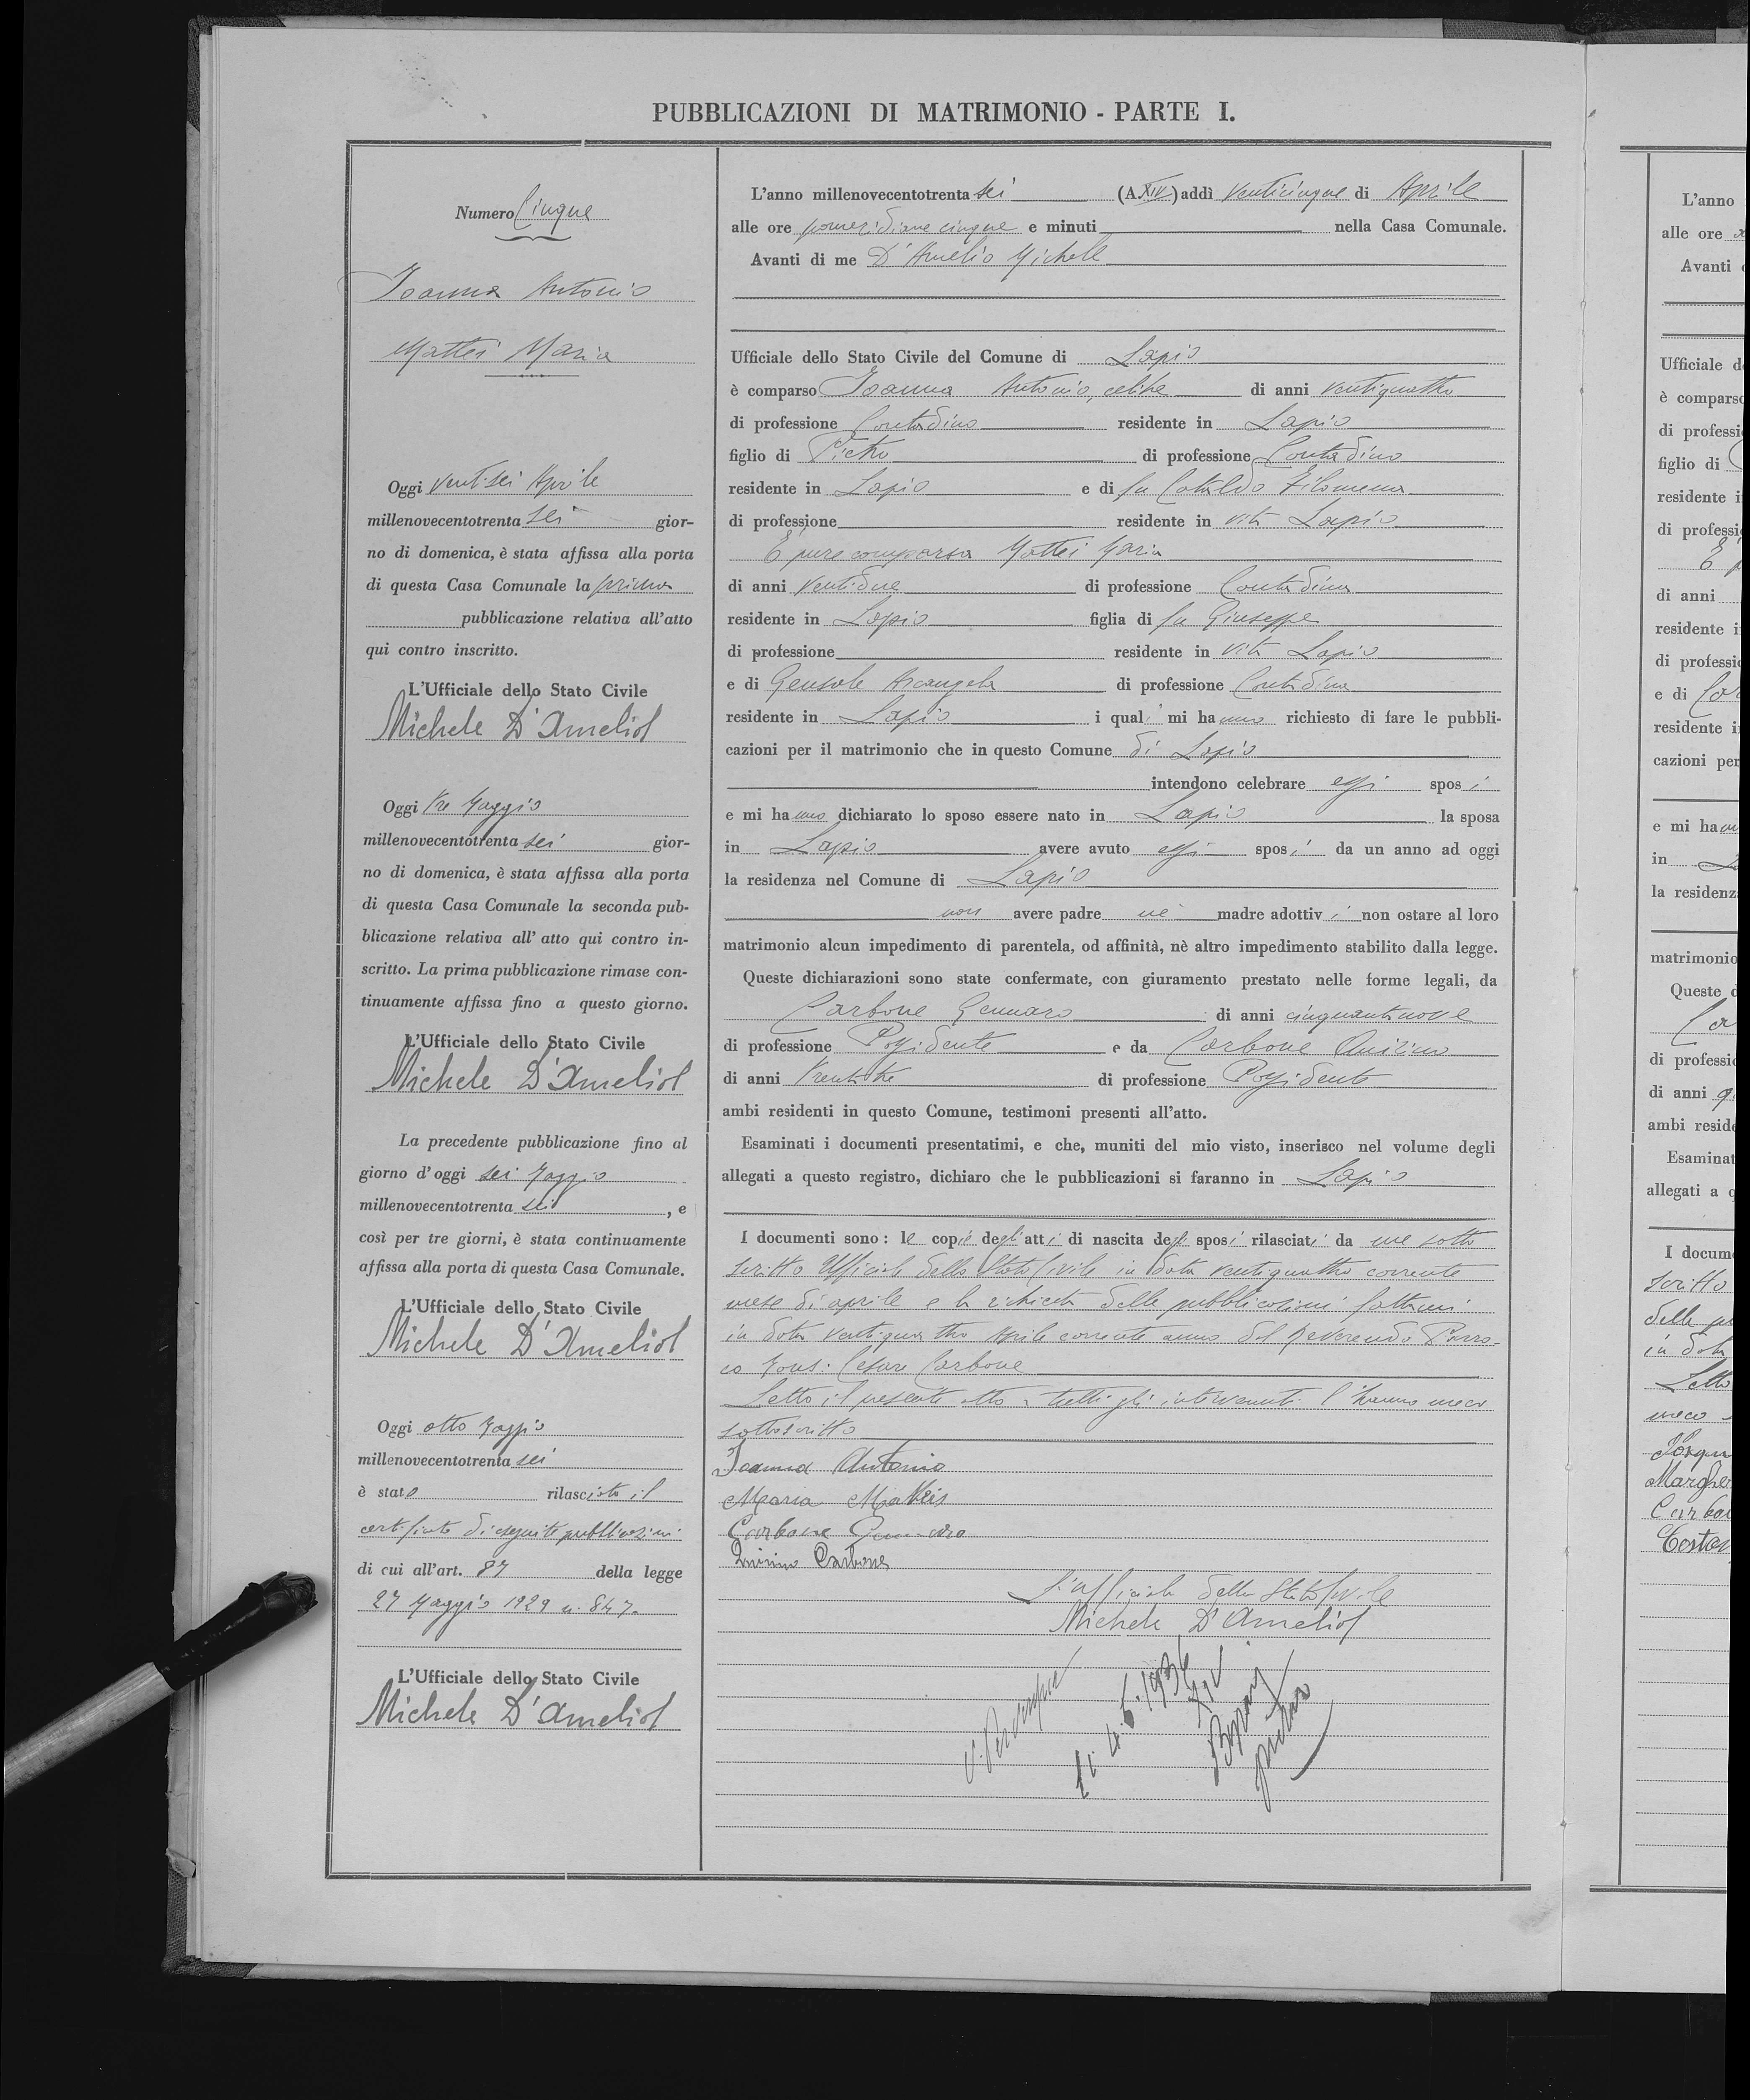 PUBBLICAZIONI DI MATRIMONIO - PARTE I.
Numero Cinque
Ioanna Antonio
Mattei Maria
Oggi ventisei Aprile
millenovecentotrenta sei gior-
no di domenica, è stata affissa alla porta
di questa Casa Comunale la prima
pubblicazione relativa all'atto
qui contro inscritto.
L'Ufficiale dello Stato Civile
Michele D'Amelio
Oggi tre Maggio
millenovecentotrenta sei gior-
no di domenica, è stata affissa alla porta
di questa Casa Comunale la seconda pub-
blicazione relativa all' atto qui contro in-
scritto. La prima pubblicazione rimase con-
tinuamente affissa fino a questo giorno.
L'Ufficiale dello Stato Civile
Michele D'Amelio
La precedente pubblicazione fino al
giorno d'oggi sei Maggio
millenovecentotrenta sei, e
così per tre giorni, è stata continuamente
affissa alla porta di questa Casa Comunale.
L'Ufficiale dello Stato Civile
Michele D'Amelio
Oggi otto Maggio
millenovecentotrenta sei
è stato rilasciato il
certificato di eseguite pubblicazioni
di cui all'art. 87 della legge
27 Maggio 1929 n. 847.
L'Ufficiale dello Stato Civile
Michele D'Amelio
L'anno millenovecentotrenta sei (A. XIV) addì venticinque di Aprile
alle ore pomeridiane cinque e minuti nella Casa Comunale.
Avanti di me D'Amelio Michele
Ufficiale dello Stato Civile del Comune di Lapio
è comparso Ioanna Antonio, celibe di anni ventiquattro
di professione Contadino residente in Lapio
figlio di Pietro di professione Contadino
residente in Lapio e di fu Cataldo Filomena
di professione residente in vita Lapio
È pure comparsa Mattei Maria
di anni ventidue di professione Contadina
residente in Lapio figlia di fu Giuseppe
di professione residente in vita Lapio
e di Gensale Arcangela di professione Contadina
residente in Lapio i quali mi hanno richiesto di fare le pubbli-
cazioni per il matrimonio che in questo Comune di Lapio
intendono celebrare essi sposi
e mi hanno dichiarato lo sposo essere nato in Lapio la sposa
in Lapio avere avuto essi sposi da un anno ad oggi
la residenza nel Comune di Lapio
non avere padre nè madre adottivi non ostare al loro
matrimonio alcun impedimento di parentela, od affinità, nè altro impedimento stabilito dalla legge.
Queste dichiarazioni sono state confermate, con giuramento prestato nelle forme legali, da
Carbone Gennaro di anni cinquantanove
di professione Possidente e da Carbone Quirino
di anni trentatre di professione Possidente
ambi residenti in questo Comune, testimoni presenti all'atto.
Esaminati i documenti presentatimi, e che, muniti del mio visto, inserisco nel volume degli
allegati a questo registro, dichiaro che le pubblicazioni si faranno in Lapio
I documenti sono: le copie degli atti di nascita degli sposi rilasciati da me sotto
scritto Ufficiale dello Stato Civile in data ventiquattro corrente
mese di aprile e la richiesta delle pubblicazioni fattami
in data ventiquattro Aprile corrente anno dal Reverendo Parro-
co Mons: Cesare Carbone
Letto il presente atto a tutti gli intervenuti l'hanno meco
sottoscritto
Ioanna Antonio
Maria Matteis
Carbone Gennaro
Quirino Carbone
L'Ufficiale dello Stato Civile
Michele D'Amelio
1936
XIV
L'anno
alle ore
Avanti
Ufficiale d
è comparso
di professi
figlio di
residente i
di professi
di anni
residente i
di professi
e di
residente i
cazioni per
e mi ha
in
la residenz
matrimonio
Queste d
di professio
di anni
ambi reside
Esaminat
allegati a q
I docum
scritto
delle pu
in data
Letto
meco
Marghe
Carbo